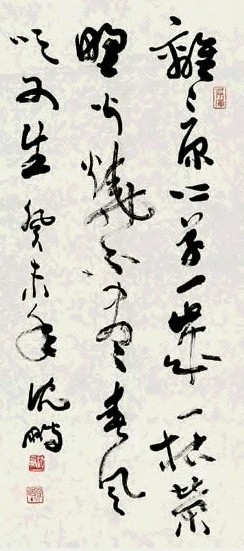 離〻原上草一歲一枯榮
野火燒不盡春風
吹又生 癸未年 沈鵬